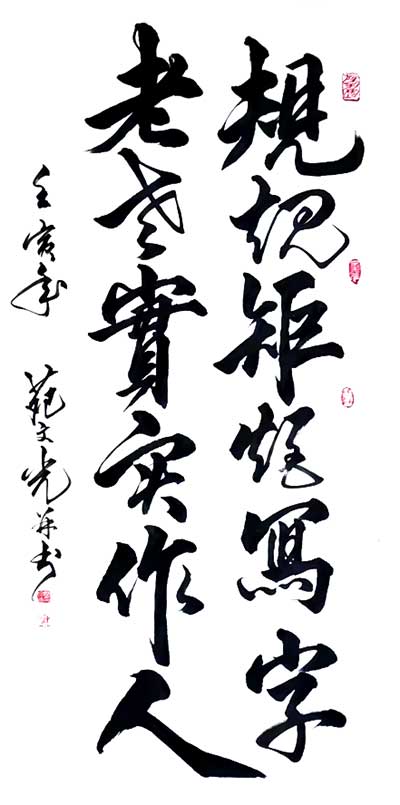 規規矩矩寫字
老老實实作人
壬寅年 範文光并书